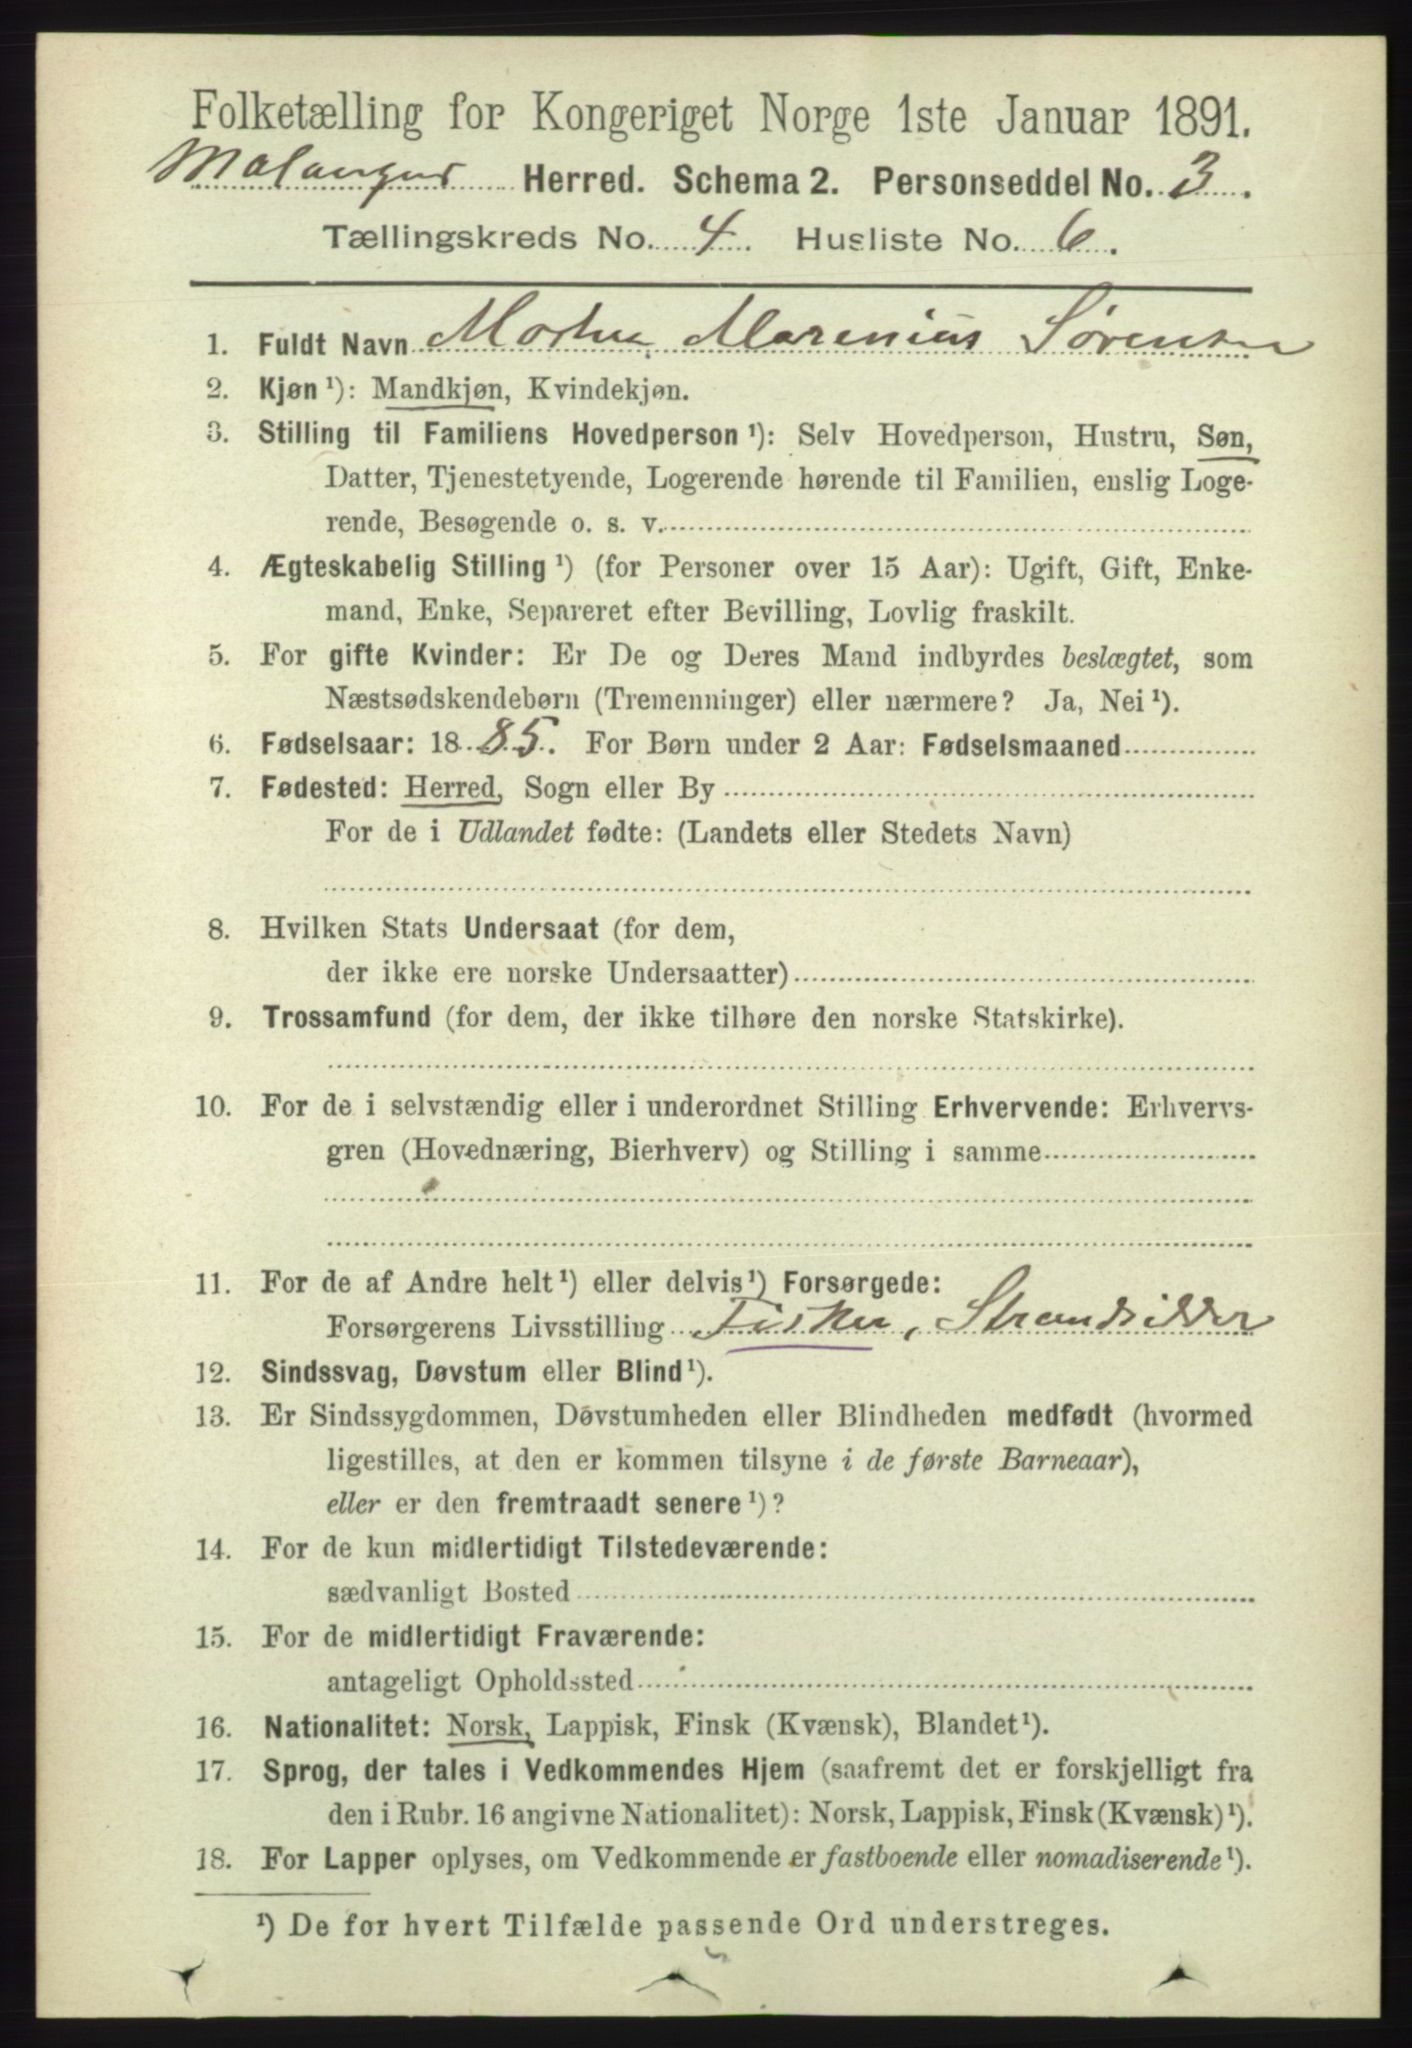 Folketælling for Kongeriget Norge 1ste Januar 1891.
Malangens Herred. Schema 2. Personseddel No. 3.
Tællingskreds No. 4. Husliste No. 6.
1. Fuldt Navn Morten Marenius Sørensen
2. Kjøn ¹): Mandkjøn, Kvindekjøn.
3. Stilling til Familiens Hovedperson ¹): Selv Hovedperson, Hustru, Søn,
Datter, Tjenestetyende, Logerende hørende til Familien, enslig Loge-
rende, Besøgende o. s. v.
4. Ægteskabelig Stilling ¹) (for Personer over 15 Aar): Ugift, Gift, Enke-
mand, Enke, Separeret efter Bevilling, Lovlig fraskilt.
5. For gifte Kvinder: Er De og Deres Mand indbyrdes beslægtet, som
Næstsødskendebørn (Tremenninger) eller nærmere? Ja, Nei ¹).
6. Fødselsaar: 1885. For Børn under 2 Aar: Fødselsmaaned
7. Fødested: Herred, Sogn eller By
For de i Udlandet fødte: (Landets eller Stedets Navn)
8. Hvilken Stats Undersaat (for dem,
der ikke ere norske Undersaatter)
9. Trossamfund (for dem, der ikke tilhøre den norske Statskirke).
10. For de i selvstændig eller i underordnet Stilling Erhvervende: Erhvervs-
gren (Hovednæring, Bierhverv) og Stilling i samme
11. For de af Andre helt ¹) eller delvis ¹) Forsørgede:
Forsørgerens Livsstilling Fisker, Strandsidder
12. Sindssvag, Døvstum eller Blind ¹).
13. Er Sindssygdommen, Døvstumheden eller Blindheden medfødt (hvormed
ligestilles, at den er kommen tilsyne i de første Barneaar),
eller er den fremtraadt senere ¹)?
14. For de kun midlertidigt Tilstedeværende:
sædvanligt Bosted
15. For de midlertidigt Fraværende:
antageligt Opholdssted
16. Nationalitet: Norsk, Lappisk, Finsk (Kvænsk), Blandet ¹).
17. Sprog, der tales i Vedkommendes Hjem (saafremt det er forskjelligt fra
den i Rubr. 16 angivne Nationalitet): Norsk, Lappisk, Finsk (Kvænsk) ¹).
18. For Lapper oplyses, om Vedkommende er fastboende eller nomadiserende ¹).
¹) De for hvert Tilfælde passende Ord understreges.